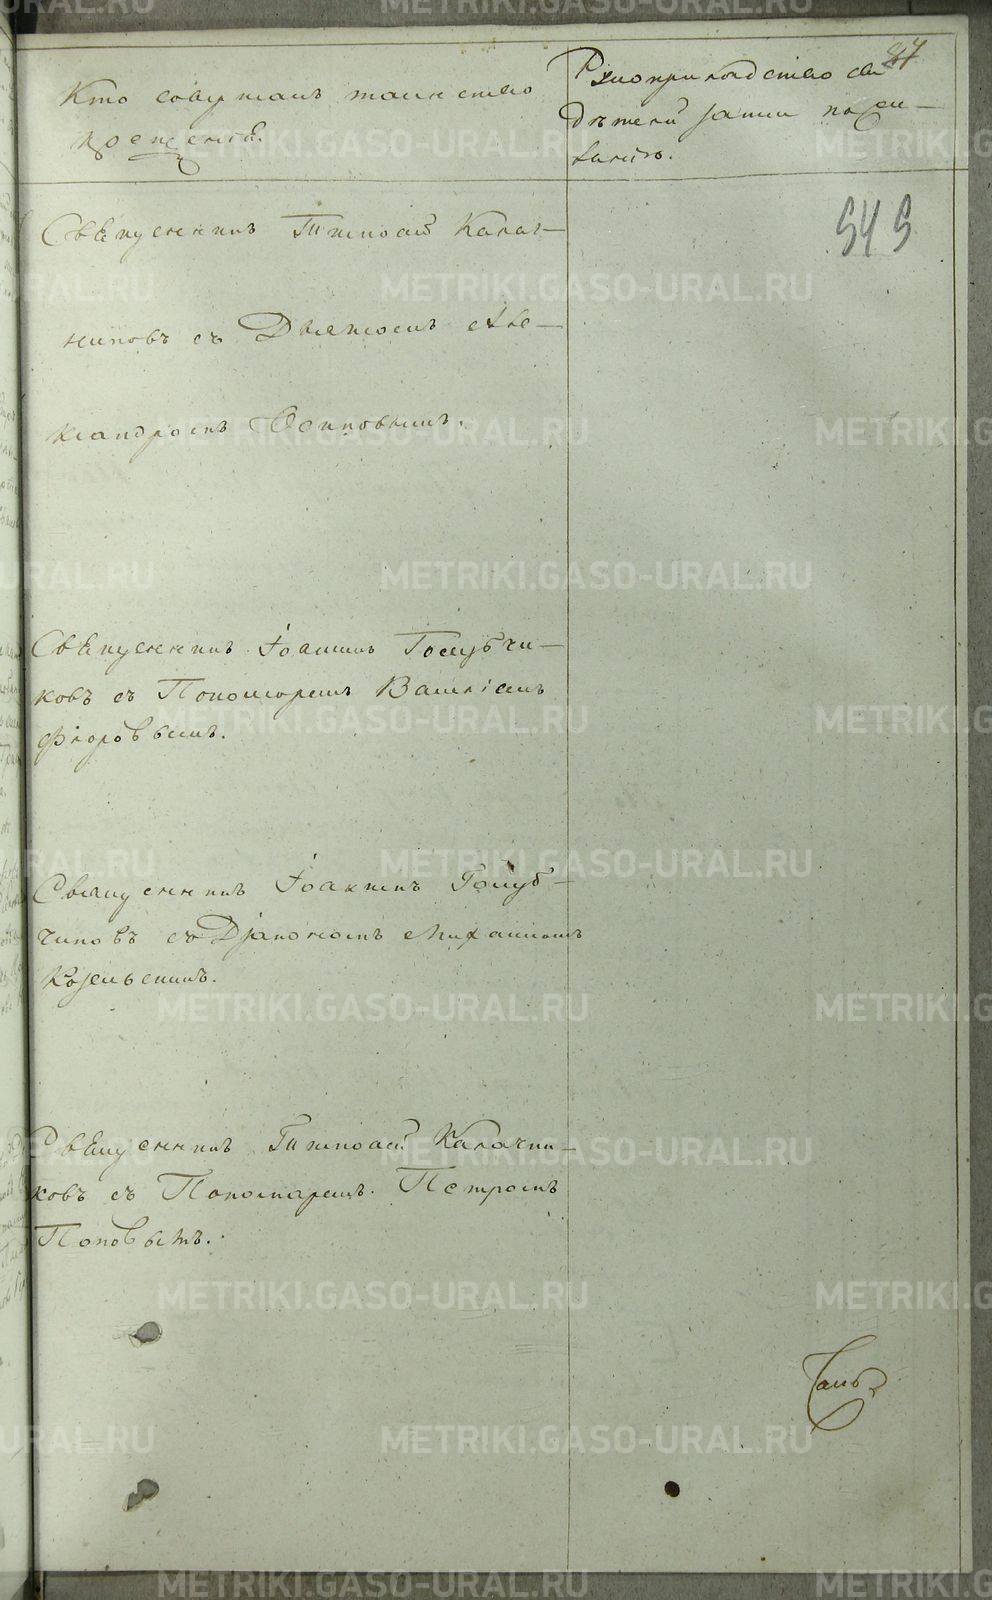 87
Кто совершалъ таинство
крещенія.
Рукоприкладство сви
дѣтелей записи по же-
ланію.
545
Священникъ Тимофей Калач-
никовъ съ Дьякономъ Але-
ксандромъ Осиповымъ.
Священникъ Іоаннъ Голубчи-
ковъ съ Пономаремъ Василіемъ
Флоровымъ.
Священникъ Іоакимъ Голуб-
чиковъ съ Діакономъ Михаиломъ
Козельскимъ.
Священникъ Тимофей Калачни-
ковъ съ Пономаремъ. Петромъ
Поповымъ.
METRIKI.GASO-URAL.RU